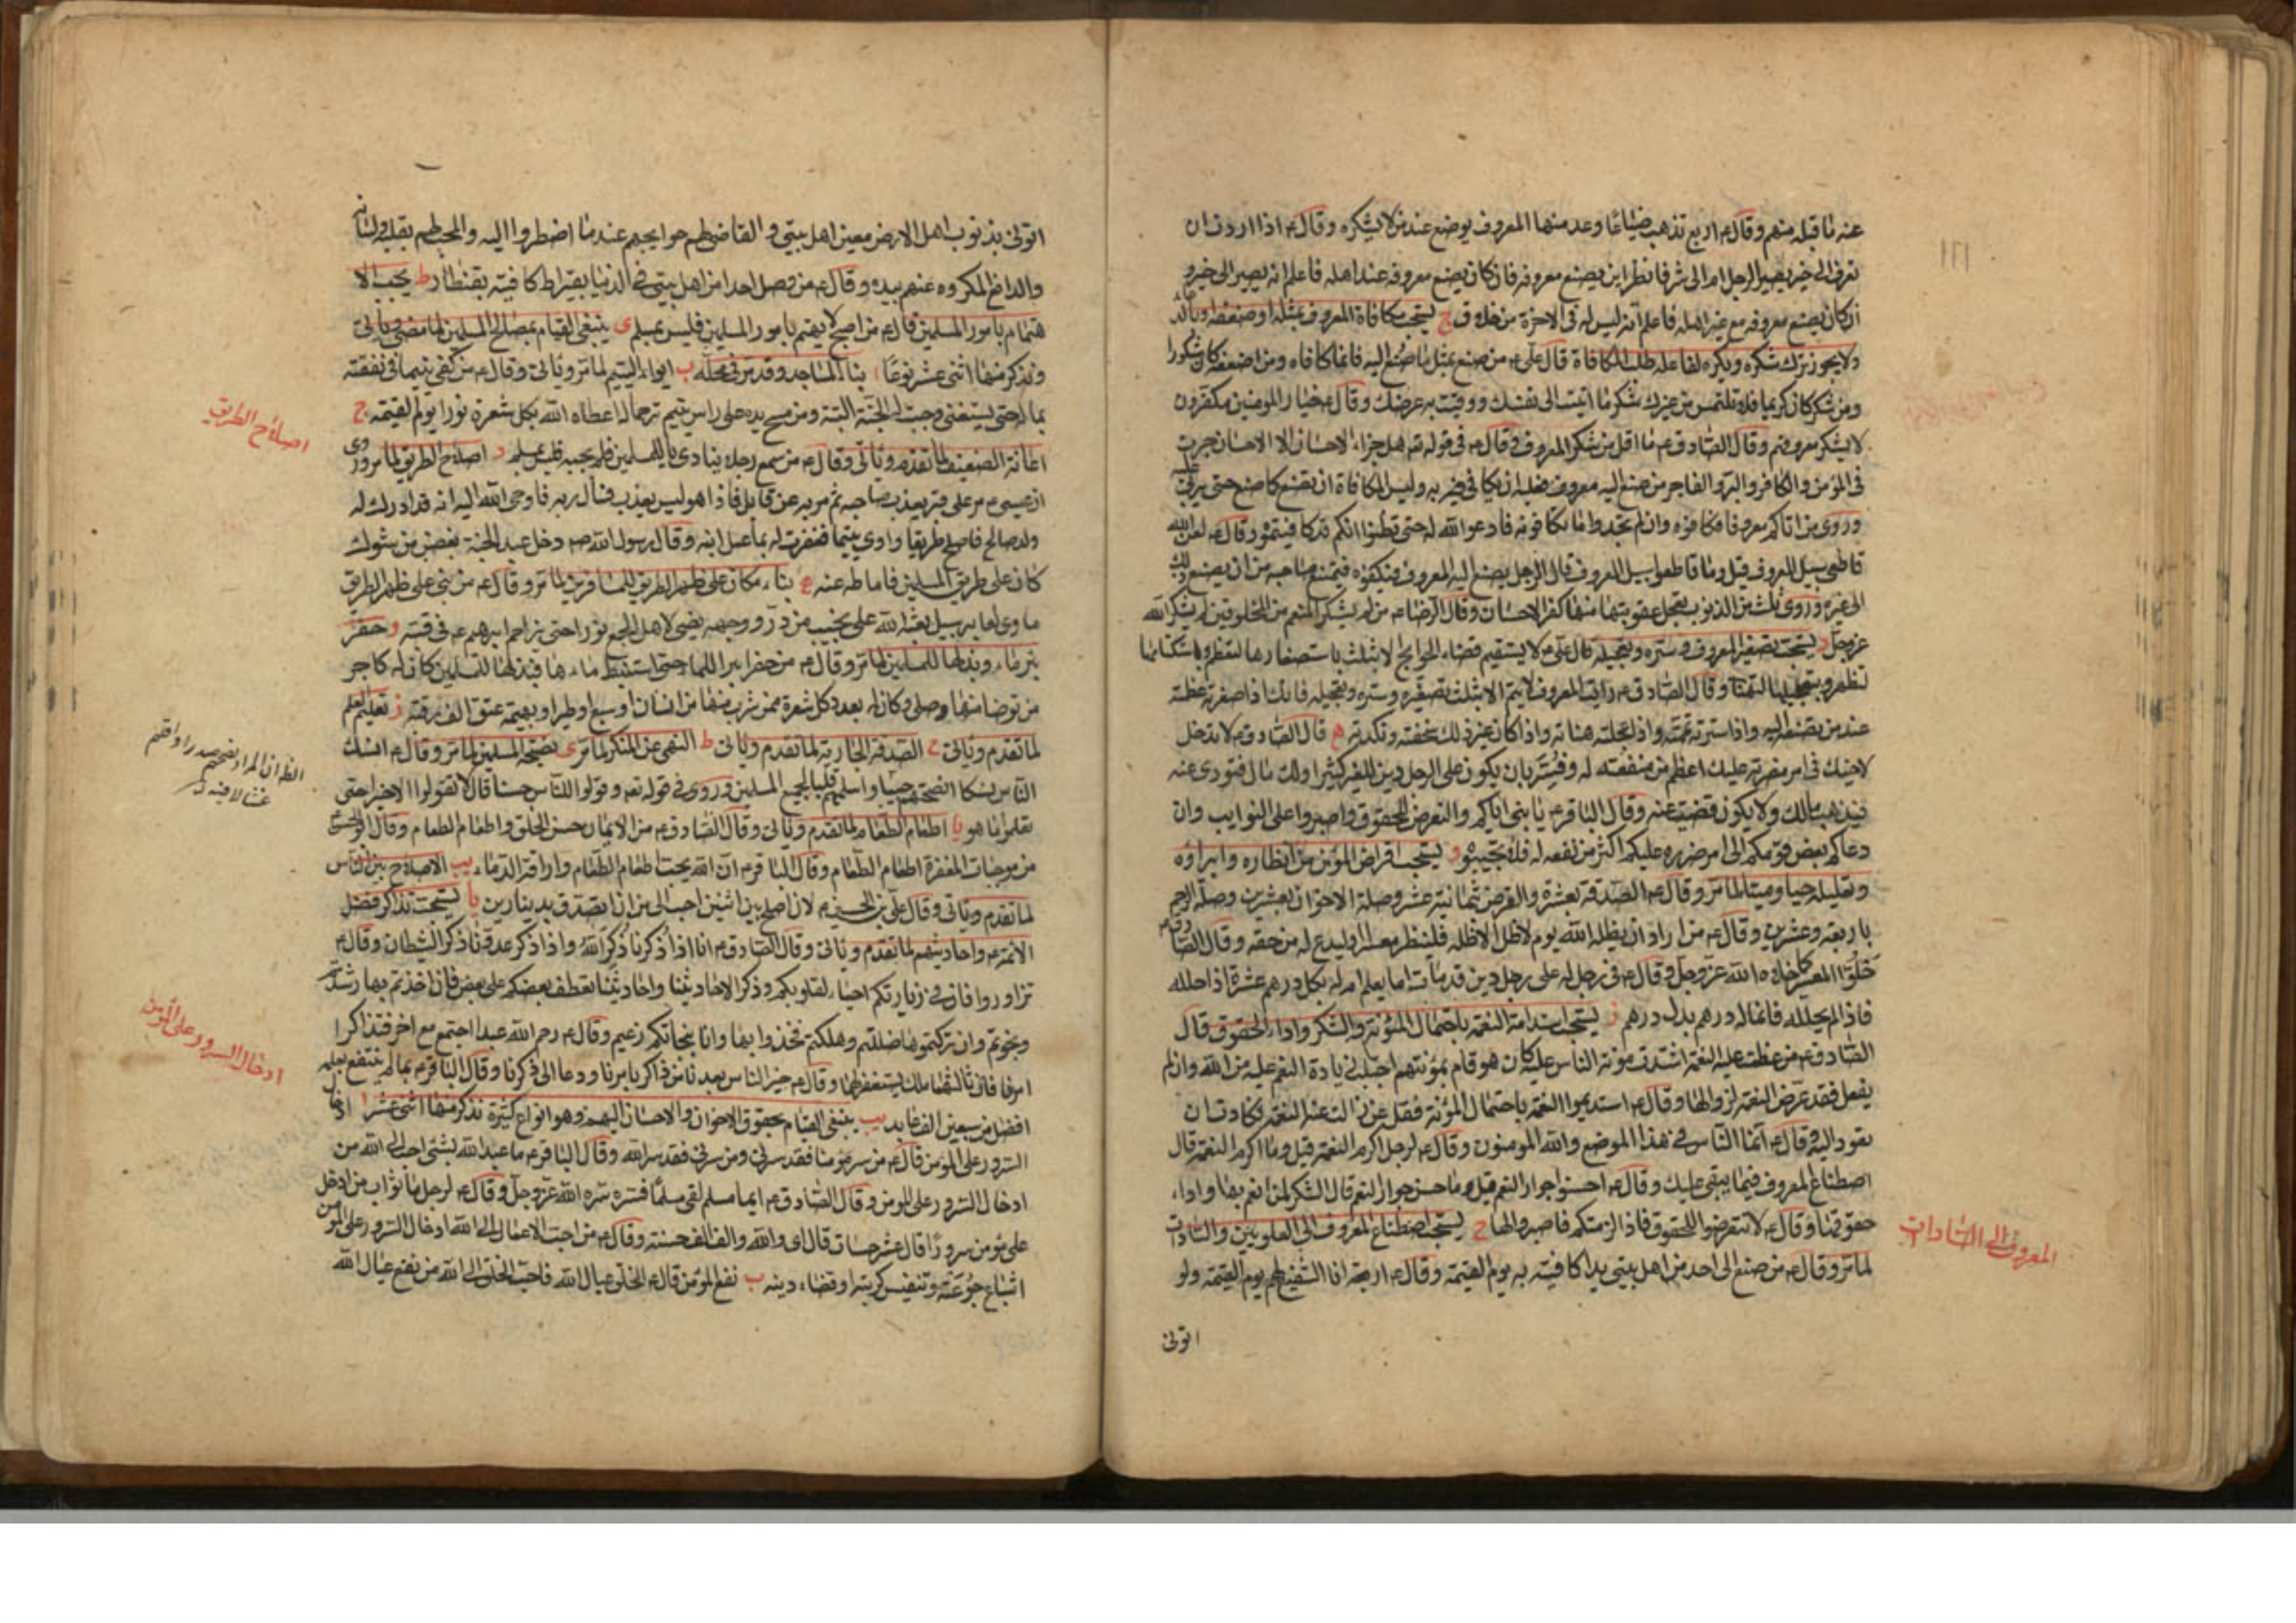 عنه ما قبله منهم وقال ع اربع تذهب ضياعا وعد منها المعروف يوضع عند من لا يشكره وقال ع اذا اردت ان
تعرف الى خير يصير الرجل ام الى شر فانظر اين يصنع معروفه فان كان يصنع معروفه عند اهله فاعلم انه يصير الى خير و
ان كان يصنع معروفه مع غير اهله فاعلم انه ليس له في الاخرة من خلاق ج يستحب مكافاة المعروف بمثله او ضعفه او بالدعاء
ولا يجوز ترك شكره ويكره لفاعله طلب المكافاة قال علي ع من صنع بمثل ما صنع اليه فانما كافاه ومن اضعفه كان شكورا
ومن شكر كان كريما فلا تلتمس من غيرك شكر ما اتيت الى نفسك ووقيت به عرضك وقال ع خيار المومنين مكفرون
لا يشكر معروفهم وقال الصادق ع ما اقل من شكر المعروف وقال ع في قوله تع هل جزاء الاحسان الا الاحسان جرت
في المؤمن والكافر والبر والفاجر من صنع اليه معروف فعليه ان يكافي به وليس المكافاة ان تصنع كما صنع حتى يربي
وروى من اتاكم معروفا فكافوه وان لم تجدوا ما تكافونه فادعوا الله له حتى تظنوا انكم قد كافيتموه وقال ع لعن الله
قاطعي سبيل المعروف قيل وما قاطعوا سبيل المعروف قال الرجل يصنع اليه المعروف فيكفره فيمنع صاحبه من ان يصنع ذلك
الى غيره وروى ثلث من الذنوب تعجل عقوبتها منها كفر الاحسان وقال الرضا ع من لم يشكر المنعم من المخلوقين لم يشكر الله
عز وجل د يستحب تصغير المعروف وستره وتعجيله قال علي ع لا يستقيم قضاء الحوايج الا بثلث باستصغارها لتعظم وباستكتامها
لتظهر وبتعجيلها لتهنا وقال الصادق ع رايت المعروف لا يتم الا بثلث تصغيره وستره وتعجيله فانك اذا صغرته عظمته
عند من تصنعه اليه واذا سترته تممته واذا عجلته هناته واذا كان غير ذلك سخفته ونكدته ه قال الصادق ع لا تدخل
لاخيك في امر مضرته عليك اعظم من منفعته له وفسر بان يكون على الرجل دين للغير كثير ولك مال فتودى عنه
فيذهب مالك ولا يكون قضيت عنه وقال الباقر ع يا بني اياكم والتعرض للحقوق واصبروا على النوايب وان
دعاكم بعض قومكم الى امر ضرره عليكم اكثر من نفعه له فلا تجيبوه و يستحب اقراض المؤمن وانظاره وابراؤه
وتحليله حيا وميتا لما مر وقال ع الصدقة بعشرة والقرض بثمانية عشر وصلة الاخوان بعشرين وصلة الرحم
باربعة وعشرين وقال ع من اراد ان يظله الله يوم لا ظل الا ظله فلينظر معسرا او ليدع له من حقه وقال الصادق ع
خلوا المعسر كما خلاه الله عز وجل وقال ع في رجل له على رجل دين قد مات اما يعلم ان له بكل درهم عشرة اذا حلله
فاذا لم يحلله فانما له درهم بدل درهم ز يستحب استدامة النعمة باحتمال المؤنة والشكر واداء الحقوق قال
الصادق ع من عظمت عليه النعمة اشتدت مؤنة الناس عليه فان هو قام بمؤنتهم اجتلب زيادة النعم عليه من الله وان لم
يفعل فقد عرض النعمة لزوالها وقال ع استديموا النعمة باحتمال المؤنة فقل من زالت عنه النعمة فكادت ان
تعود اليه وقال ع انما الناس في هذا الموضع والله المومنون وقال ع لرجل اكرم النعمة قيل وما اكرام النعمة قال
اصطناع المعروف فيما يبقى عليك وقال ع احسنوا جوار النعم قيل وما حسن جوار النعم قال الشكر لمن انعم بها واداء
حقوقها وقال ع لا تتعرضوا للحقوق فاذا لزمتكم فاصبروا لها ح يستحب اصطناع المعروف الى العلويين والسادات
لما مر وقال ع من صنع الى احد من اهل بيتي يدا كافيته به يوم القيمة وقال ع اربعة انا الشفيع لهم يوم القيمة ولو
اتوني
المعروف الى السادات
اتوني بذنوب اهل الارض معين اهل بيتي والقاضي لهم حوايجهم عند ما اضطروا اليه والمحب لهم بقلبه ولسانه
والدافع المكروه عنهم بيده وقال ع من وصل احدا من اهل بيتي في الدنيا بقيراط كافيته بقنطار ط يجب الا
هتمام بامور المسلمين قال ع من اصبح لا يهتم بامور المسلمين فليس بمسلم ى ينبغي القيام بمصالح المسلمين لما مضى وياتي
ونذكر منها اثنى عشر نوعا ا بناء المساجد وقد مر في محله ب ايواء اليتيم لما مر وياتي وقال ع من كفى يتيما في نفقته
بماله حتى يستغني وجبت له الجنة البتة ومن مسح يده على راس يتيم ترحما له اعطاه الله بكل شعرة نورا يوم القيمة ج
اعانة الضعيف لما تقدم وياتي وقال ع من سمع رجلا ينادي يا للمسلمين فلم يجبه فليس بمسلم د اصلاح الطريق لما مر وروى
ان عيسى ع مر على قبر يعذب صاحبه ثم مر به عن قابل فاذا هو ليس يعذب فسال ربه فاوحى الله اليه انه قد ادرك له
ولد صالح فاصلح طريقا واوى يتيما فغفرت له بما عمل ابنه وقال رسول الله ص دخل عبد الجنة بغصن من شوك
كان على طريق المسلمين فاماطه عنه ه بناء مكان على ظهر الطريق للمسافرين لما مر وقال ع من بنى على ظهر الطريق
ماوى لعابر سبيل بعثه الله على نجيب من در ووجهه يضئ لاهل الجمع نورا حتى يزاحم ابرهيم ع في قبته و حفر
بئر ماء وبذلها للمسلمين لما مر وقال ع من حفر بئرا للماء حتى استنبط ماءها فبذلها للمسلمين كان له كاجر
من توضا منها وصلى وكان له بعدد كل شعرة ممن شرب منها من انسان او سبع او طير او بهيمة عتق الف رقبة ز تعليم العلم
لما تقدم وياتي ح الصدقة الجارية لما تقدم وياتي ط النهي عن المنكر لما مر ى نصيحة المسلمين لما مر وقال ع انسك
الناس نسكا انصحهم جيبا واسلمهم قلبا لجميع المسلمين وروى في قوله تع وقولوا للناس حسنا قال لا تقولوا الا خيرا حتى
تعلموا ما هو يا اطعام الطعام لما تقدم وياتي وقال الصادق ع من الايمان حسن الخلق واطعام الطعام وقال ابو الحسن ع
من موجبات المغفرة اطعام الطعام وقال الباقر ع ان الله يحب اطعام الطعام واراقة الدماء يب الاصلاح بين الناس
لما تقدم وياتي وقال علي بن الحسين ع لان اصلح بين اثنين احب الى من ان اتصدق بدينارين يا يستحب تذاكر فضل
الائمة ع واحاديثهم لما تقدم وياتي وقال الصادق ع انا اذا ذكرنا ذكر الله واذا ذكر عدونا ذكر الشيطان وقال ع
تزاوروا فان في زيارتكم احياء لقلوبكم وذكرا لاحاديثنا واحاديثنا تعطف بعضكم على بعض فان اخذتم بها رشدتم
ونجوتم وان تركتموها ضللتم وهلكتم فخذوا بها وانا بنجاتكم زعيم وقال ع رحم الله عبدا اجتمع مع اخر فتذاكرا
امرنا فان ثالثهما ملك يستغفر لهما وقال ع خير الناس بعدنا من ذاكر بامرنا ودعا الى ذكرنا وقال الباقر ع عالم ينتفع بعلمه
افضل من سبعين الف عابد يب ينبغي القيام بحقوق الاخوان والاحسان اليهم وهو انواع كثيرة نذكر منها اثنى عشر ا ادخال
السرور على المؤمن قال ع من سر مؤمنا فقد سرني ومن سرني فقد سر الله وقال الباقر ع ما عبد الله بشئ احب الى الله من
ادخال السرور على المومن وقال الصادق ع ايما مسلم لقى مسلما فسره سره الله عز وجل وقال ع لرجل ما ثواب من ادخل
على مؤمن سرورا قال عشر حسنات قال اى والله والف الف حسنة وقال ع من احب الاعمال الى الله ادخال السرور على المؤمن
اشباع جوعته وتنفيس كربته او قضاء دينه ب نفع المؤمن قال ع الخلق عيال الله فاحب الخلق الى الله من نفع عيال الله
اصلاح الطريق
ادخال السرور على المؤمن